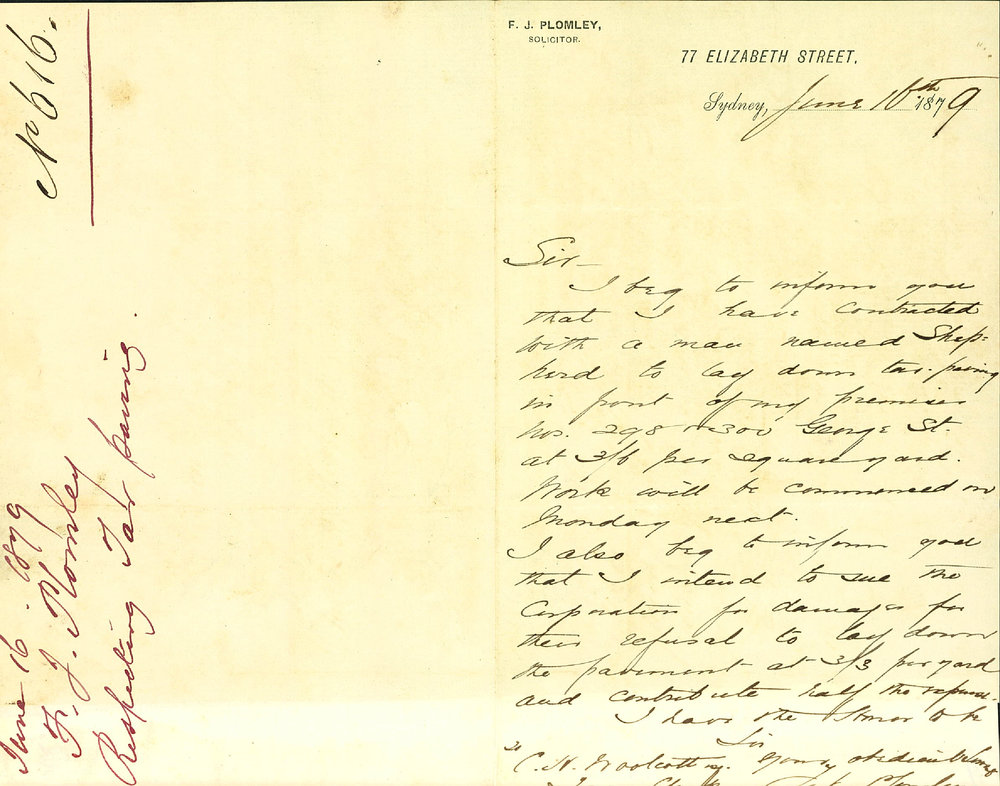 No 616.
June 16 1879
F. J. Plomley
Respecting Tar paving.
F. J. PLOMLEY,
SOLICITOR.
77 ELIZABETH STREET,
Sydney, June 16th 1879
Sir—
I beg to inform you
that I have contracted
with a man named Shep=
herd to lay down tar-paving
in front of my premises
Nos. 298 & 300 George St.
at 3/6 per square yard.
Work will be commenced on
Monday next.
I also beg to inform you
that I intend to sue the
Corporation for damages for
their refusal to lay down
the pavement at 3/3 per yard
and contribute half the
I have the honor to be
Sir
C. H. Woolcott Esq. Your obedient